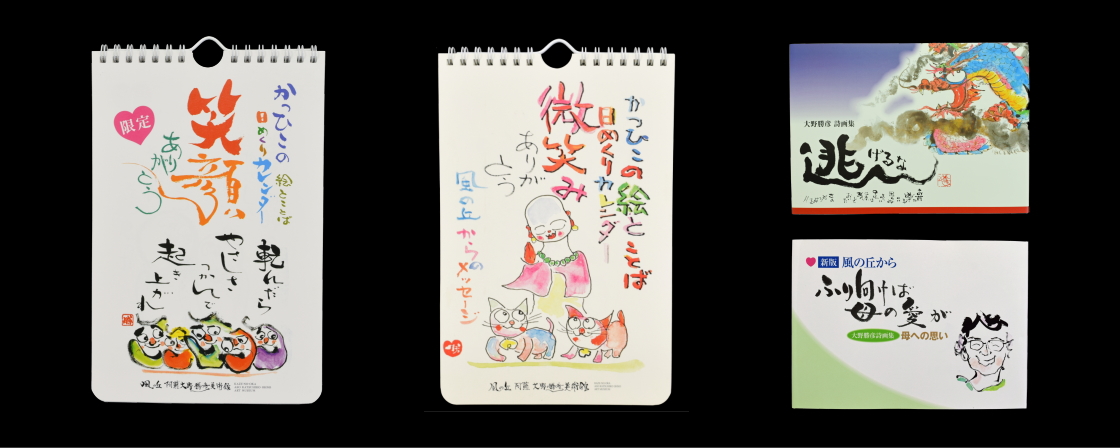 かつひこの
日めくりカレンダー
絵とことば
笑顔
ありがとう
限定
転んだら
やさしさ
つかんで
起き上がれ
風の丘 阿蘇大野勝彦美術館
かつひこの絵とことば
日めくりカレンダー
微笑み
ありがとう
風の丘からのメッセージ
風の丘 阿蘇大野勝彦美術館
大野勝彦 詩画集
逃げるな
新版 風の丘から
ふり向けば
母の愛が
大野勝彦詩画集 母への思い